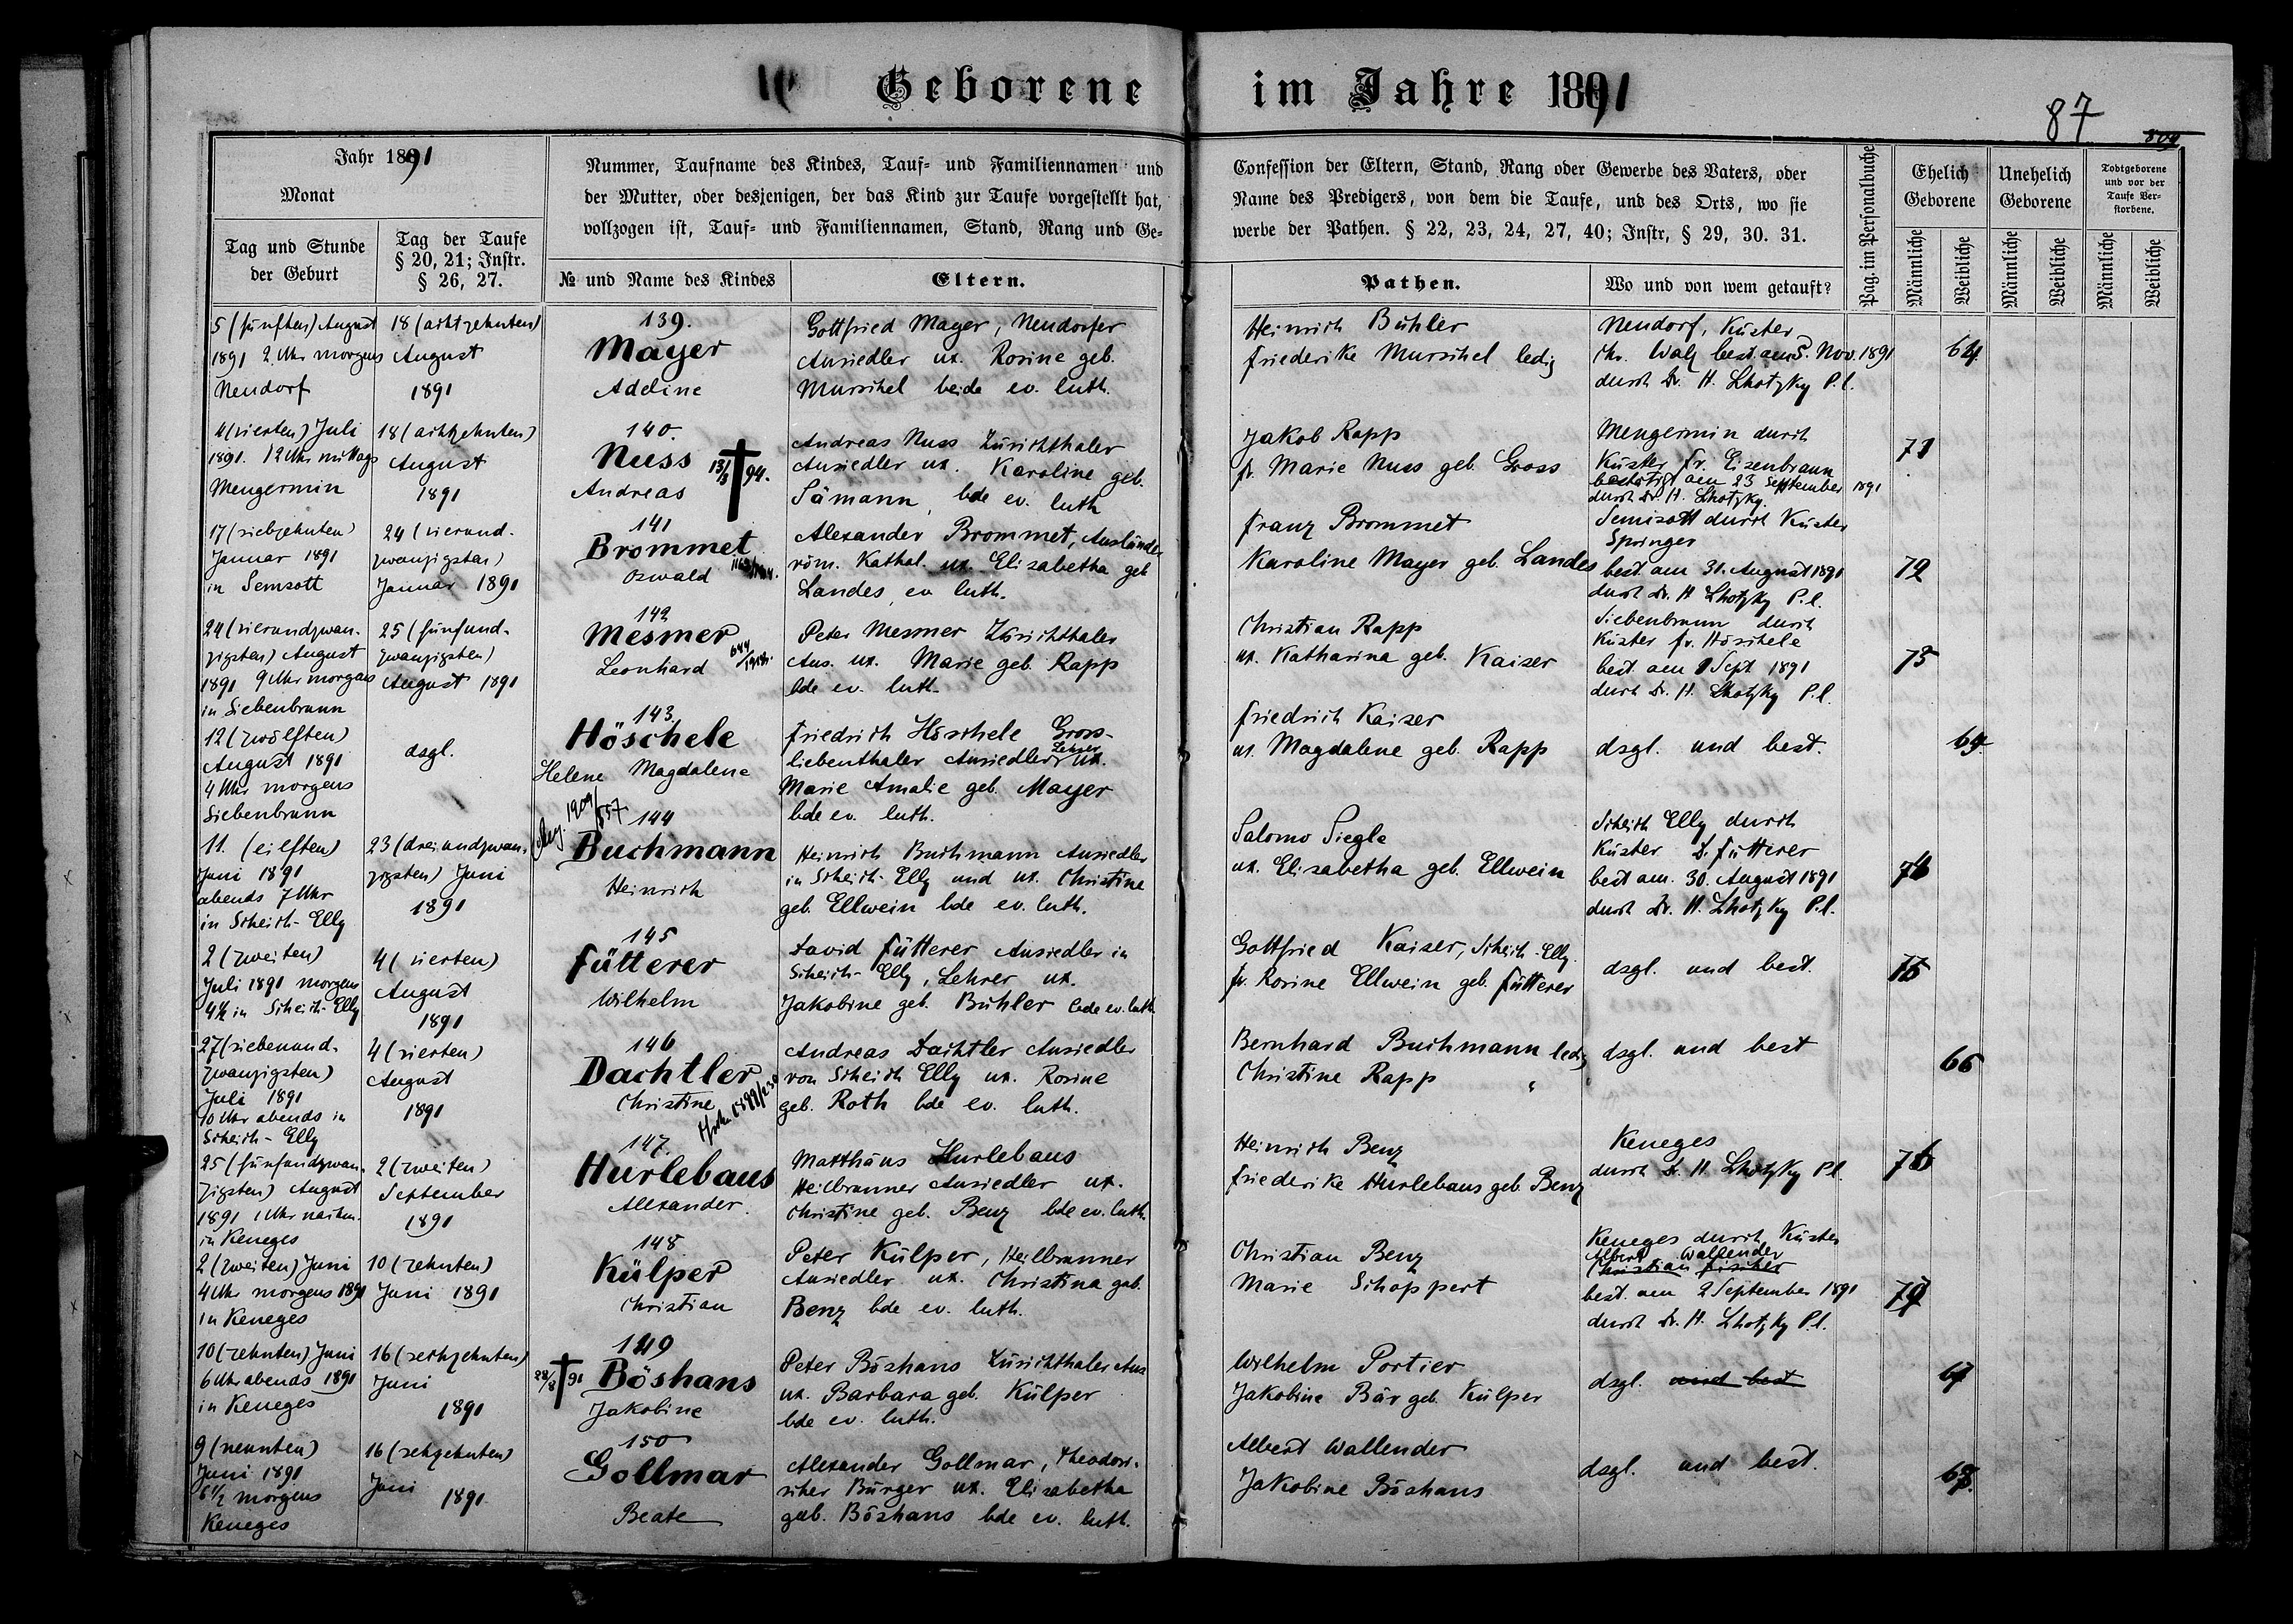 Geborene im Jahre 1891
87
809
Jahr 1891
Monat
Tag und Stunde
der Geburt
Tag der Taufe
§ 20, 21; Instr.
§ 26, 27.
Nummer, Taufname des Kindes, Tauf- und Familiennamen und
der Mutter, oder desjenigen, der das Kind zur Taufe vorgestellt hat,
vollzogen ist, Tauf- und Familiennamen, Stand, Rang und Ge-
№ und Name des Kindes
Eltern.
Confession der Eltern, Stand, Rang oder Gewerbe des Vaters, oder
Name des Predigers, von dem die Taufe, und des Orts, wo sie
werbe der Pathen. § 22, 23, 24, 27, 40; Instr, § 29, 30. 31.
Pathen.
Wo und von wem getauft?
Pag. im Personalbuche
Ehelich
Geborene
Unehelich
Geborene
Todtgeborene
und vor der
Taufe Ver-
storbene.
Männliche
Weibliche
Männliche
Weibliche
Männliche
Weibliche
5 (fünften) August
1891 2 Uhr morgens
Neudorf
18 (achtzehnten)
August
1891
139.
Mayer
Adeline
Gottfried Mayer, Neudorfer
Ansiedler ux. Rosine geb.
Murschel beide ev. luth.
Heinrich Bühler
Friederike Murschel ledig
Neudorf, Küster
Chr. Walz best. am 5. Nov. 1891
durch Dr. H. Lhotzky P.l.
64
4 (vierten) Juli
1891. 12 Uhr mittags
Mengermin
18 (achtzehnten)
August
1891
140.
Nuss
13/3 94.
Andreas
Andreas Nuss Zürichthaler
Ansiedler ux. Karoline geb.
Sämann, bde ev. luth
Jakob Rapp
fr. Marie Nuss geb. Gross
Mengermin durch
Küster Fr. Eisenbraun
bestätigt am 23 September 1891
durch Dr. H. Lhotzky.
71
17 (siebzehnten)
Januar 1891
in Semsott
24 (vierund-
zwanzigsten)
Januar 1891
141
Brommet
Oswald
Alexander Brommet, Ausländer
röm. Kathol. ux. Elisabetha geb
Landes, ev luth.
Franz Brommet
Karoline Mayer geb. Landes
Semisott durch Küster
Springer
best am 31. August 1891
durch Dr. H Lhotzky P.l.
72
24 (vierundzwan-
zigsten) August
1891 9 Uhr morgens
in Siebenbrunn
25 (fünfund-
zwanzigsten)
August 1891
142
Mesmer
Leonhard
Peter Mesmer Zürichthaler
Ans. ux. Marie geb. Rapp
bde ev. luth.
Christian Rapp
ux. Katharina geb. Kaiser
Siebenbrunn durch
Küster Fr. Höschele
best am 1 Sept 1891
durch Dr. H. Lhotzky P.l.
73
12 (zwölften)
August 1891
4 Uhr morgens
Siebenbrunn
dsgl.
143.
Höschele
Helene Magdalene
Friedrich Höschele Gross-
Lehrer
liebenthaler Ansiedler ux.
Marie Amalie geb. Mayer
bde ev. luth.
Friedrich Kaiser
ux. Magdalene geb. Rapp
dsgl. und best.
11. (eilften)
Juni 1891
abends 7 Uhr
in Scheich-Elly
23 (dreiundzwan-
zigsten) Juni
1891
144
Buchmann
Heinrich
Heinrich Buchmann Ansiedler
in Scheich-Elly und ux. Christine
geb. Ellwein bde ev. luth.
Salomo Siegle
ux. Elisabetha geb. Ellwein
Scheich Elly durch
Küster D. Fütterer
best am. 30. August 1891
durch Dr. H. Lhotzky P.l.
74
2 (zweiten)
Juli 1891 morgens
4½ in Scheich-Elly
4 (vierten)
August
1891
145
Fütterer
Wilhelm
David Fütterer Ansiedler in
Scheich-Elly, Lehrer ux.
Jakobine geb. Bühler bde ev. luth.
Gottfried Kaiser, Scheich-Elly.
fr. Rosine Ellwein geb. Fütterer
dsgl. und best.
75
27 (siebenund-
zwanzigsten)
Juli 1891
10 Uhr abends in
Scheich-Elly
4 (vierten)
August
1891
146
Dachtler
Christine
Andreas Dachtler Ansiedler
von Scheich Elly ux. Rosine
geb. Roth bde ev. luth.
Bernhard Buchmann ledig
Christine Rapp "
dsgl. und best
66
25 (fünfundzwan-
zigsten) August
1891 1 Uhr nachm.
in Keneges
2 (zweiten)
September
1891
147.
Hurlebaus
Alexander.
Matthäus Hurlebaus
Heilbrunner Ansiedler ux.
Christine geb. Benz bde ev. luth.
Heinrich Benz
Friederike Hurlebaus geb. Benz
Keneges
durch Dr. H Lhotzky P.l.
76
2 (zweiten) Juni
4 Uhr morgens 1891
in Keneges
10 (zehnten)
Juni 1891
148
Külper
Christian
Peter Külper, Heilbrunner
Ansiedler ux. Christina geb.
Benz bde ev. luth.
Christian Benz
Marie Schoppert
Keneges durch Küster
Albert Wallender
Christian Fischer
best. am 2 September 1891
durch Dr. H. Lhotzky P.l.
10 (zehnten) Juni
6 Uhr abends 1891
in Keneges
16 (sechzehnten)
Juni
1891
149
28/8 91
Böshans
Jakobine
Peter Böshans Zürichthaler Ans
ux. Barbara geb. Külper
bde ev. luth.
Wilhelm Portier
Jakobine Bär geb. Külper
dsgl. und best
67
9 (neunten)
Juni 1891
6½ morgens
Keneges
16 (sechzehnten)
Juni
1891.
150
Gollmar
Beate
Alexander Gollmar, Theodosi-
scher Bürger ux. Elisabetha
geb. Böshans bde ev. luth.
Albert Wallender
Jakobine Böshans
dsgl. und best.
68